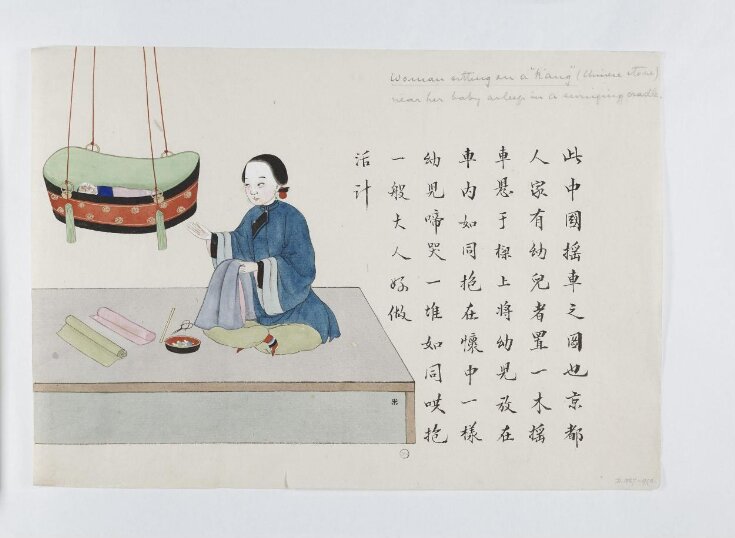 Woman sitting on a "K'ang" (Chinese stove)
near her baby asleep in a swinging cradle.
此中國搖車之圖也京都
人家有幼兒者置一木搖
車懸于樑上將幼兒放在
車內如同抱在懷中一樣
幼兒啼哭一堆如同哄抱
一般大人好做
活計